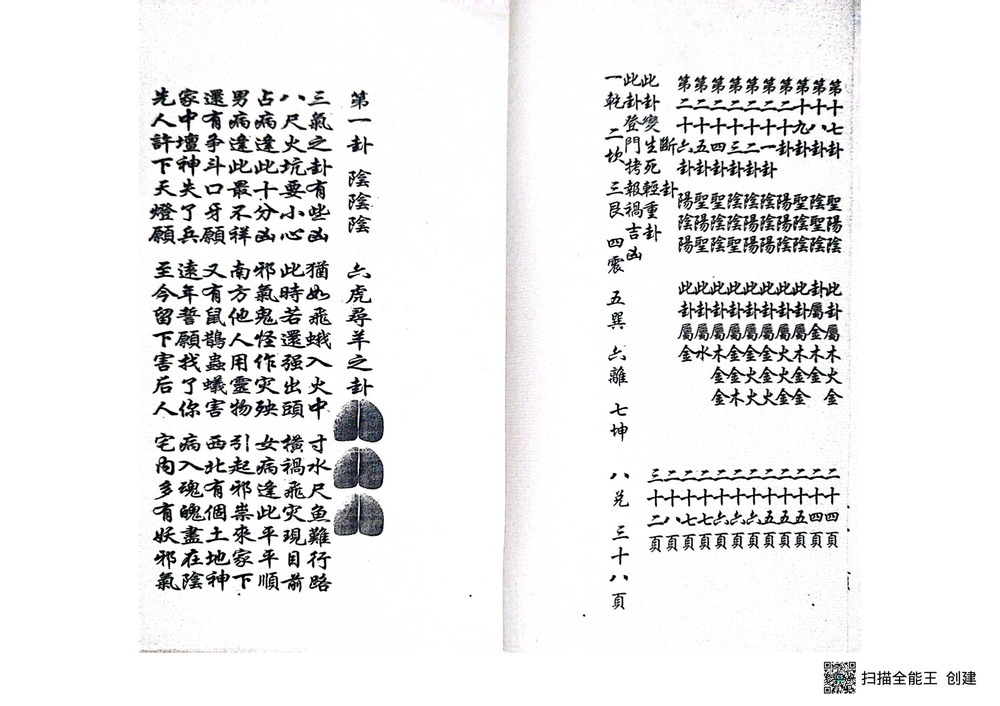 第十七卦 聖陽陰 此卦屬木火金 二十四頁
第十八卦 陰聖陽 卦屬金木金 二十四頁
第十九卦 聖陰陰 此卦屬木金金 二十五頁
第二十卦 陽陰陽 此卦屬火火金 二十五頁
第二十一卦 陰陽陽 此卦屬金金火 二十五頁
第二十二卦 陰陽陽 此卦屬金火火 二十六頁
第二十三卦 陰陰聖 此卦屬金金木 二十六頁
第二十四卦 聖陰陰 此卦屬木金金 二十六頁
第二十五卦 聖陽陽 此卦屬水 二十七頁
第二十六卦 陽陰陽 此卦屬金 二十七頁
斷卦 二十八頁
此卦變生死輕重卦 三十二頁
此卦登門拷報禍吉凶
一乾 二坎 三艮 四震 五巽 六離 七坤 八兑 三十八頁
第一卦 陰陰陰 六虎尋羊之卦
三氣之卦有些凶 猶如飛蛾入火中 寸水尺魚難行路
八尺火坑要小心 此時若還强出頭 橫禍飛灾現目前
占病逢此十分凶 邪氣鬼怪作灾殃 女病逢此平平順
男病逢此最不祥 南方他人用靈物 引起邪祟來家下
還有争斗口牙願 又有鼠鵲蟲蟻害 西北有個土地神
家中壇神失了兵 遠年誓願找了你 病入魂魄盡在陰
先人許下天燈願 至今留下害后人 宅内多有妖邪氣
扫描全能王 创建